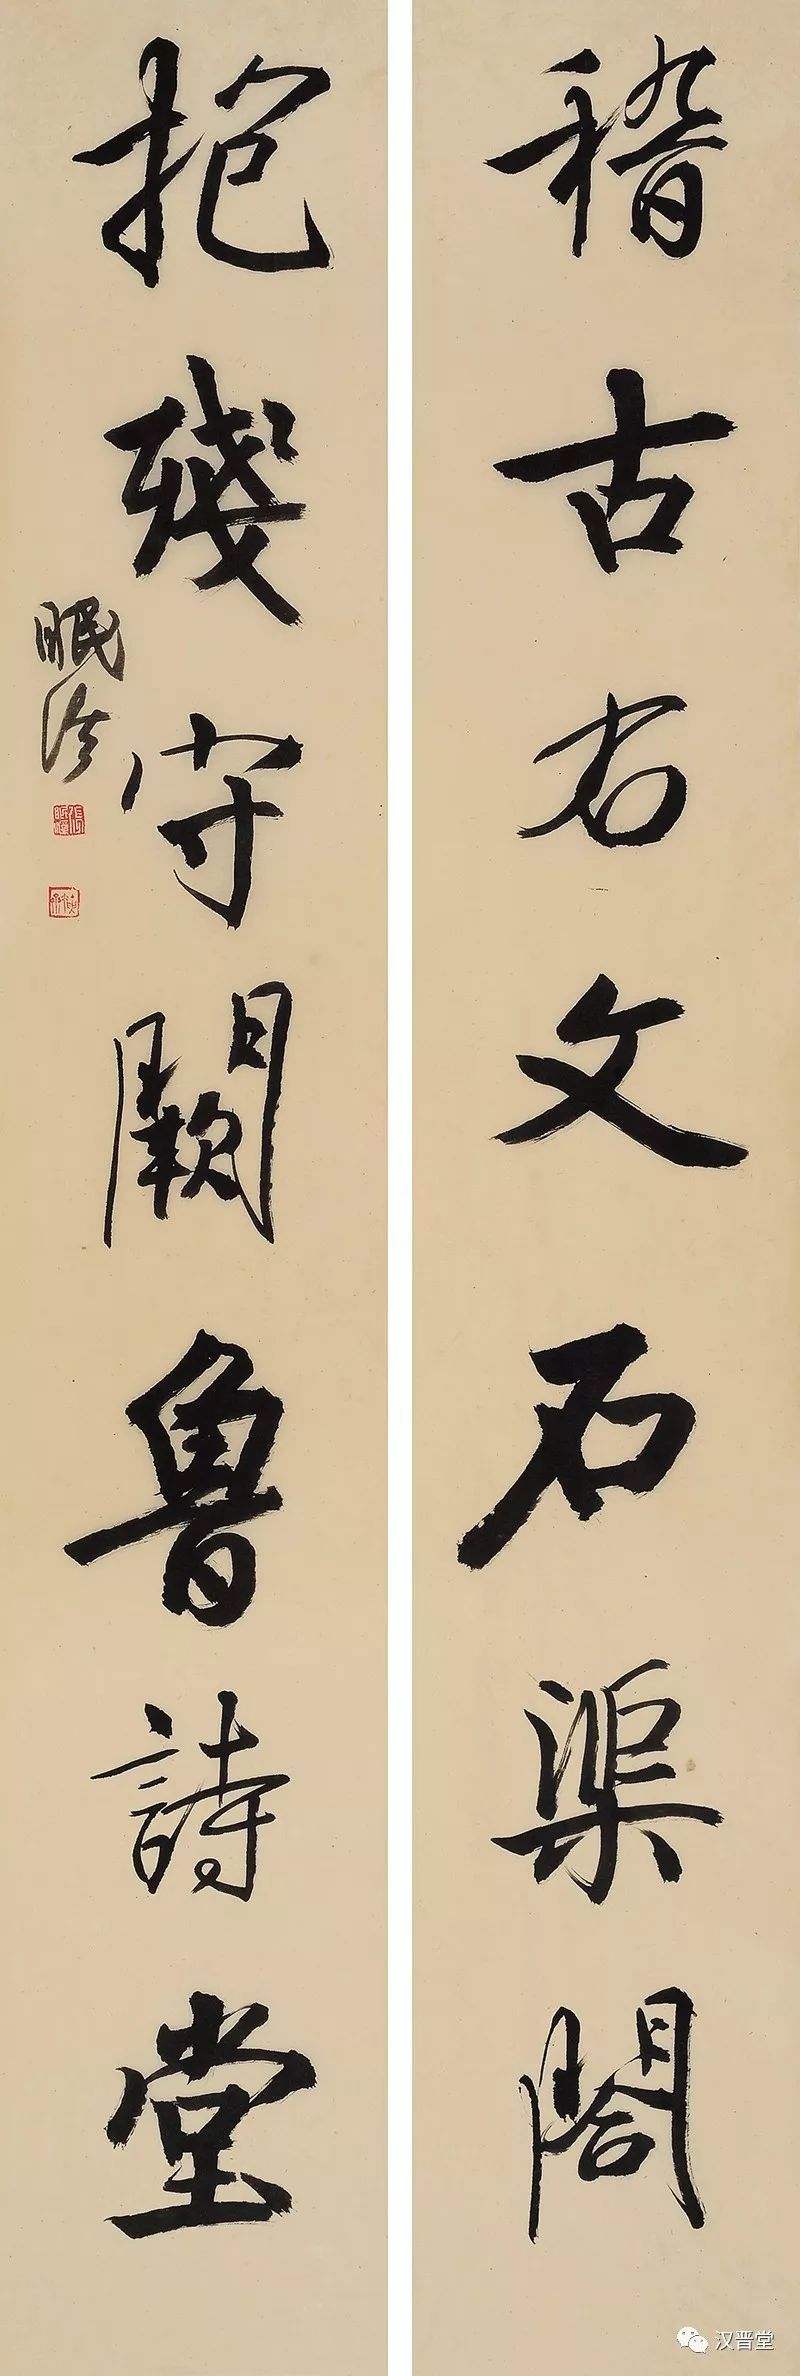 稽古右文石渠閣
抱殘守闕魯詩堂
眠
汉晋堂